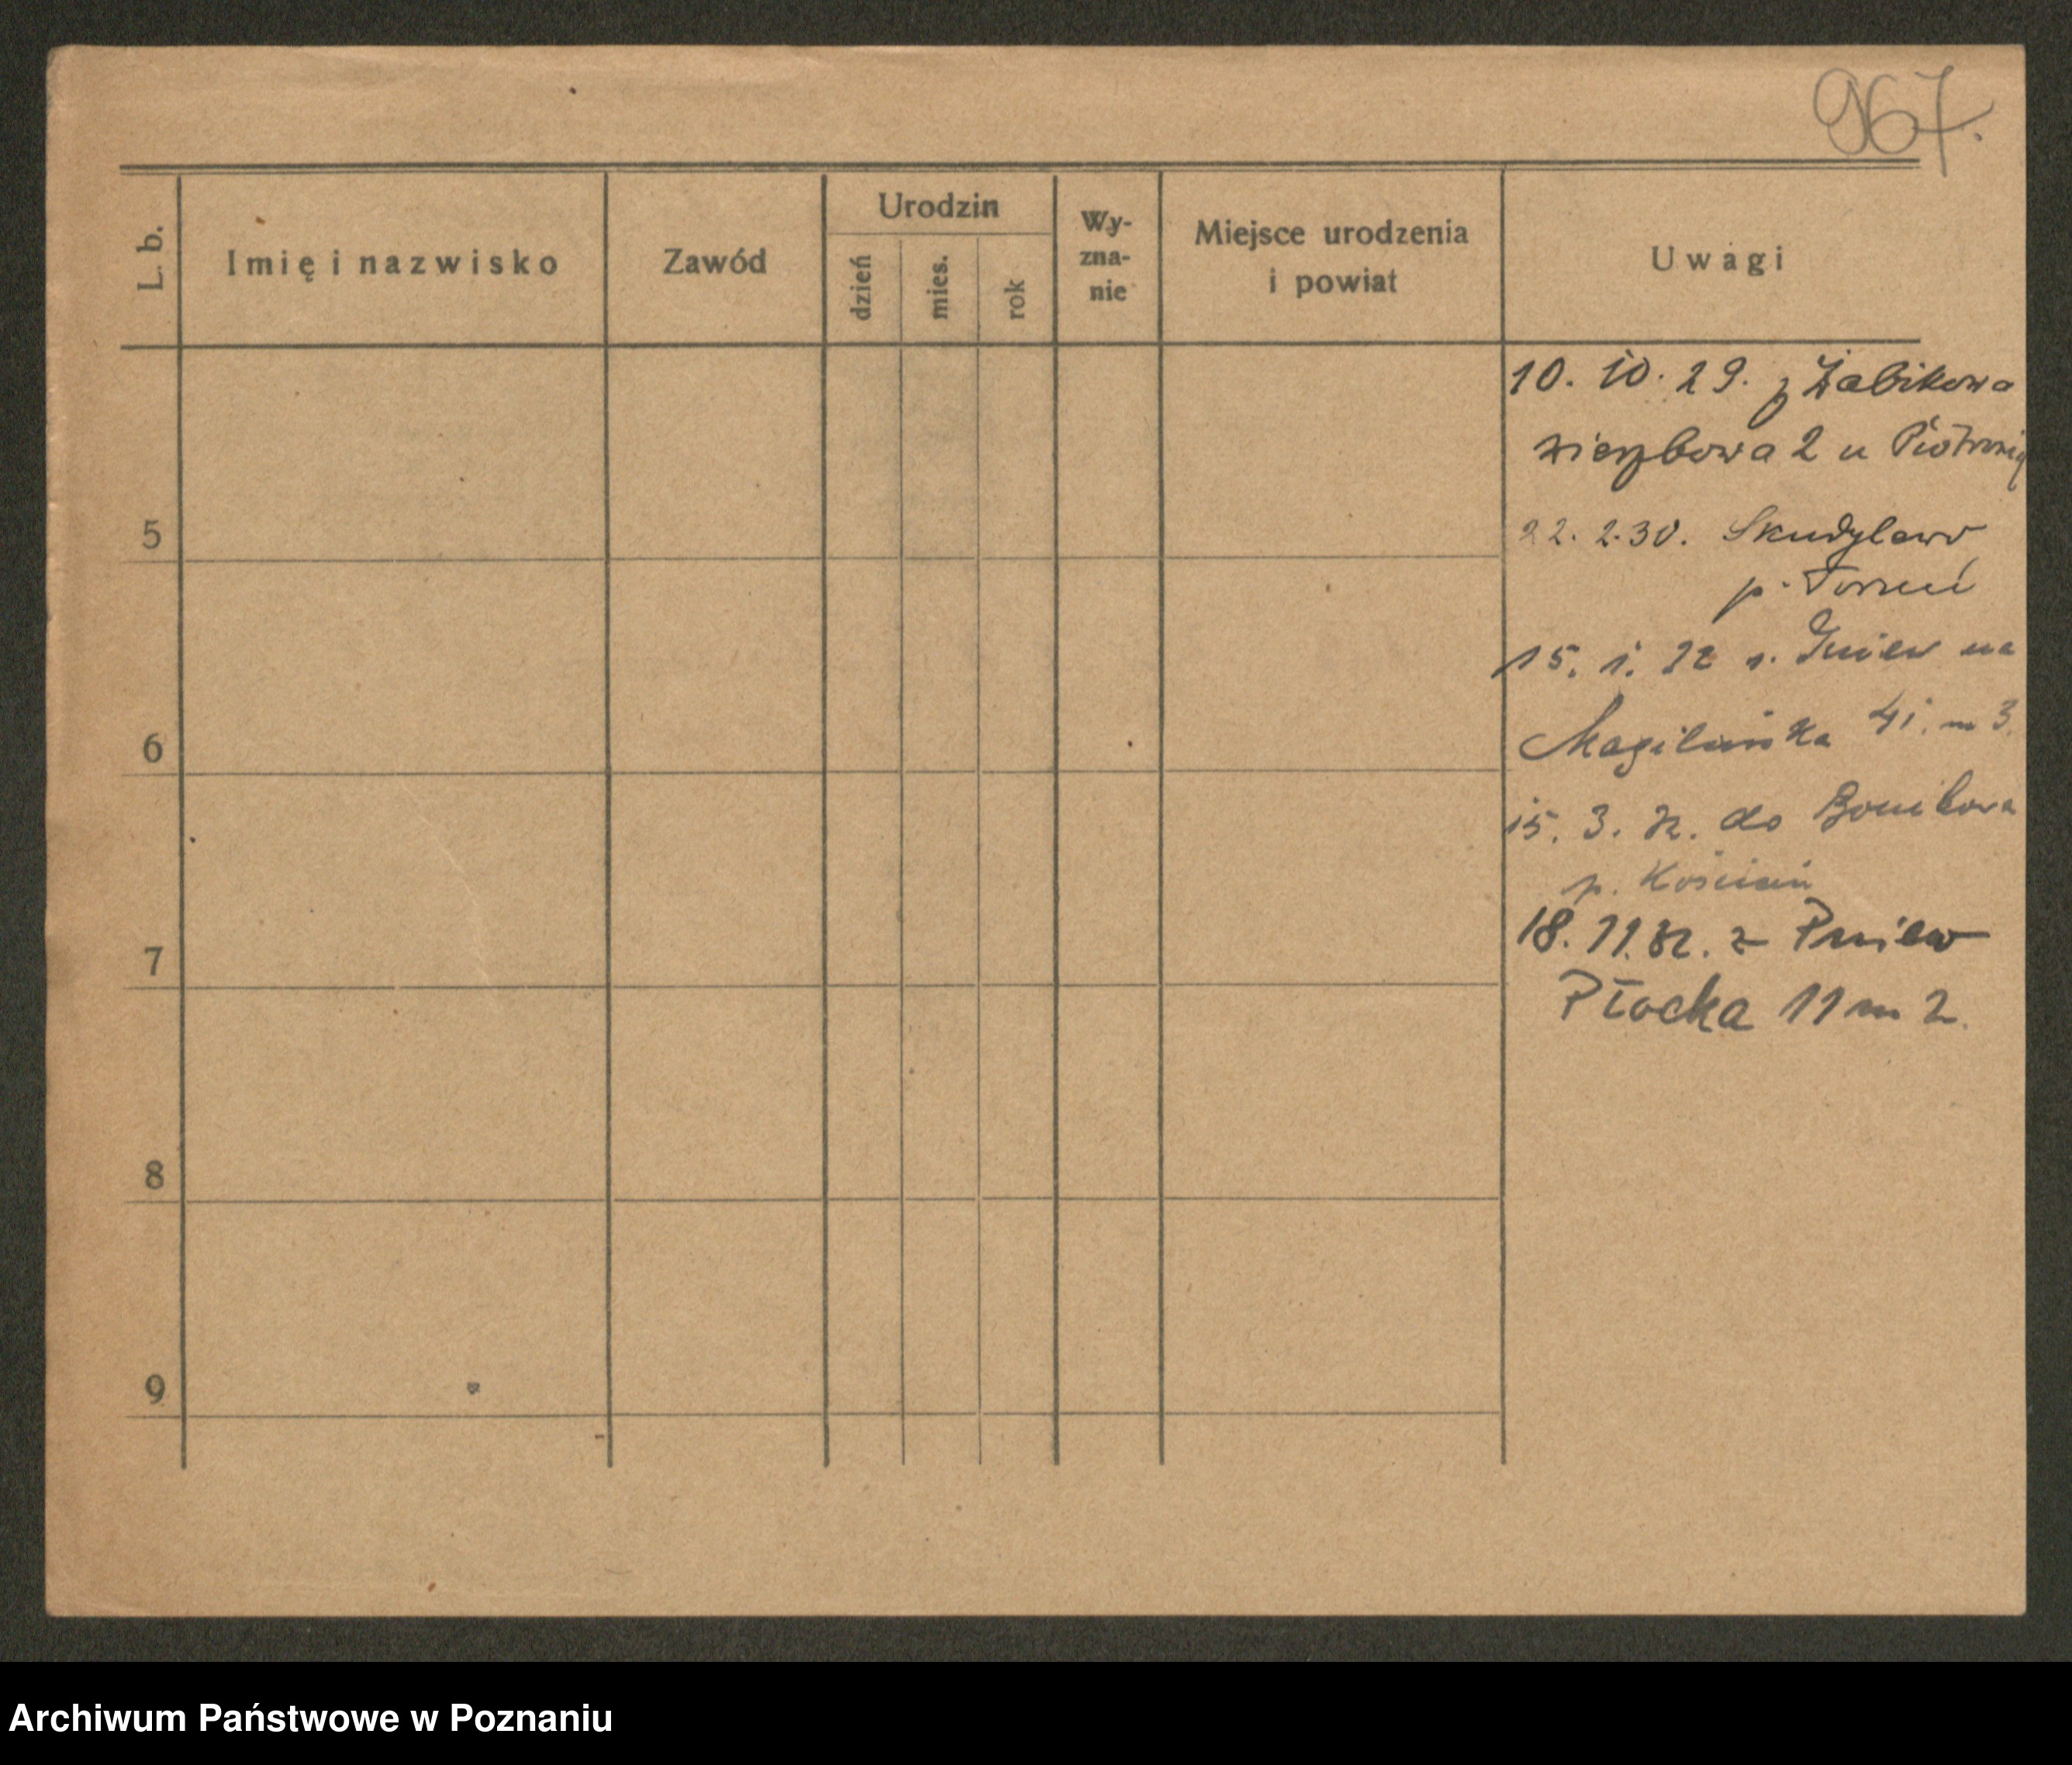 967.
L. b.
Imię i nazwisko
Zawód
Urodzin
dzień
mies.
rok
Wy-
zna-
nie
Miejsce urodzenia
i powiat
Uwagi
10. 10. 29. z Żabikowa
2 u
5
22. 2. 30.
p. Toruń
15. 1. 32 na
6
41. m 3.
15. 3. 32. do
p. Kościan
18. 11. 32. z Pniew
7
Płocka 11 m 2.
8
9
Archiwum Państwowe w Poznaniu